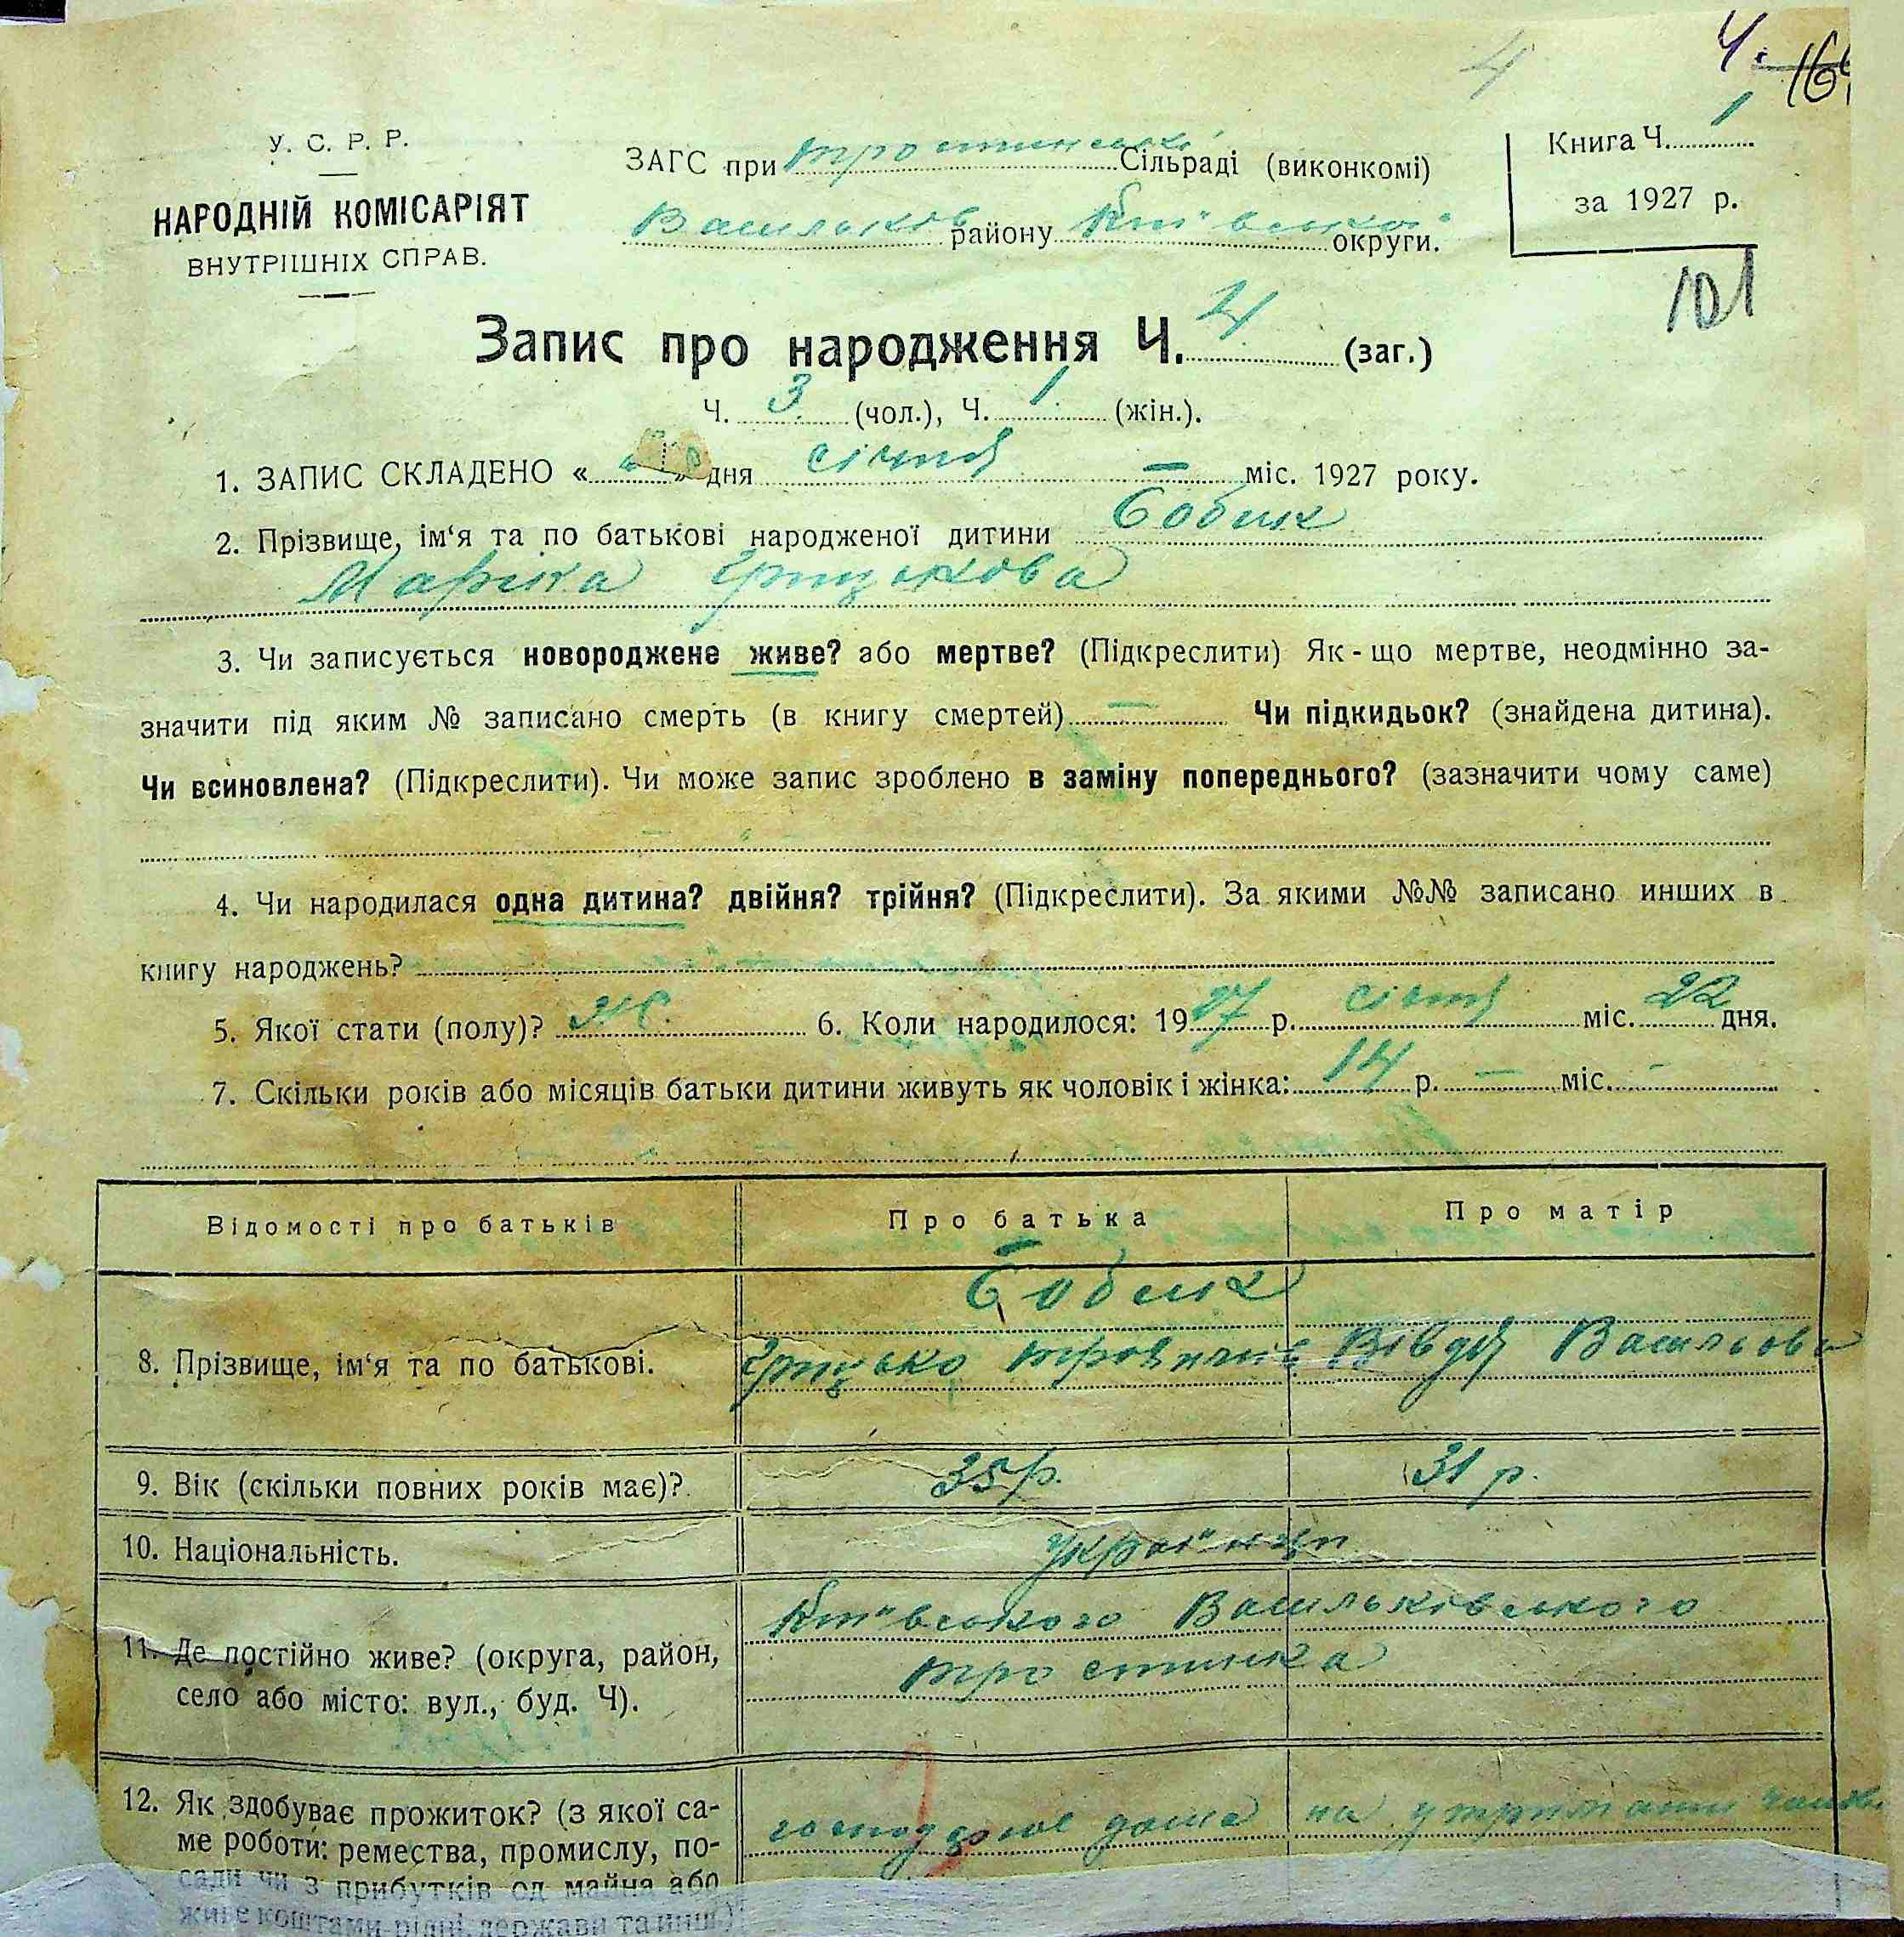 4
Ч. 16
У. С. Р. Р.
НАРОДНІЙ КОМІСАРІЯТ
ВНУТРІШНІХ СПРАВ.
ЗАГС при Тростинські Сільраді (виконкомі)
Васильків району Київської округи.
Книга Ч. 1
за 1927 р.
101
Запис про народження Ч. 4 (заг.)
Ч. 3 (чол.), Ч. 1 (жін.).
1. ЗАПИС СКЛАДЕНО « » дня січня — міс. 1927 року.
2. Прізвище, ім'я та по батькові народженої дитини Бобик
Марика Грицькова
3. Чи записується новороджене живе? або мертве? (Підкреслити) Як-що мертве, неодмінно за-
значити під яким № записано смерть (в книгу смертей) — Чи підкидьок? (знайдена дитина).
Чи всиновлена? (Підкреслити). Чи може запис зроблено в заміну попереднього? (зазначити чому саме)
4. Чи народилася одна дитина? двійня? трійня? (Підкреслити). За якими №№ записано инших в
книгу народжень?
5. Якої стати (полу)? Ж. 6. Коли народилося: 1927 р. січня міс. 22 дня.
7. Скільки років або місяців батьки дитини живуть як чоловік і жінка: 14 р. — міс. -
Відомості про батьків Про батька Про матір
Бобик
8. Прізвище, ім'я та по батькові. Грицько Вівдя Васильова
9. Вік (скільки повних років має)? 35 р. 31 р.
10. Національність. Українци
Київського Васильківського
11. Де постійно живе? (округа, район,
Тростинка
село або місто: вул., буд. Ч).
12. Як здобуває прожиток? (з якої са-
господарює дома на утриманні
ме роботи: ремества, промислу, по-
сади чи з прибутків од майна або
живе коштами рідні, держави та инш.)